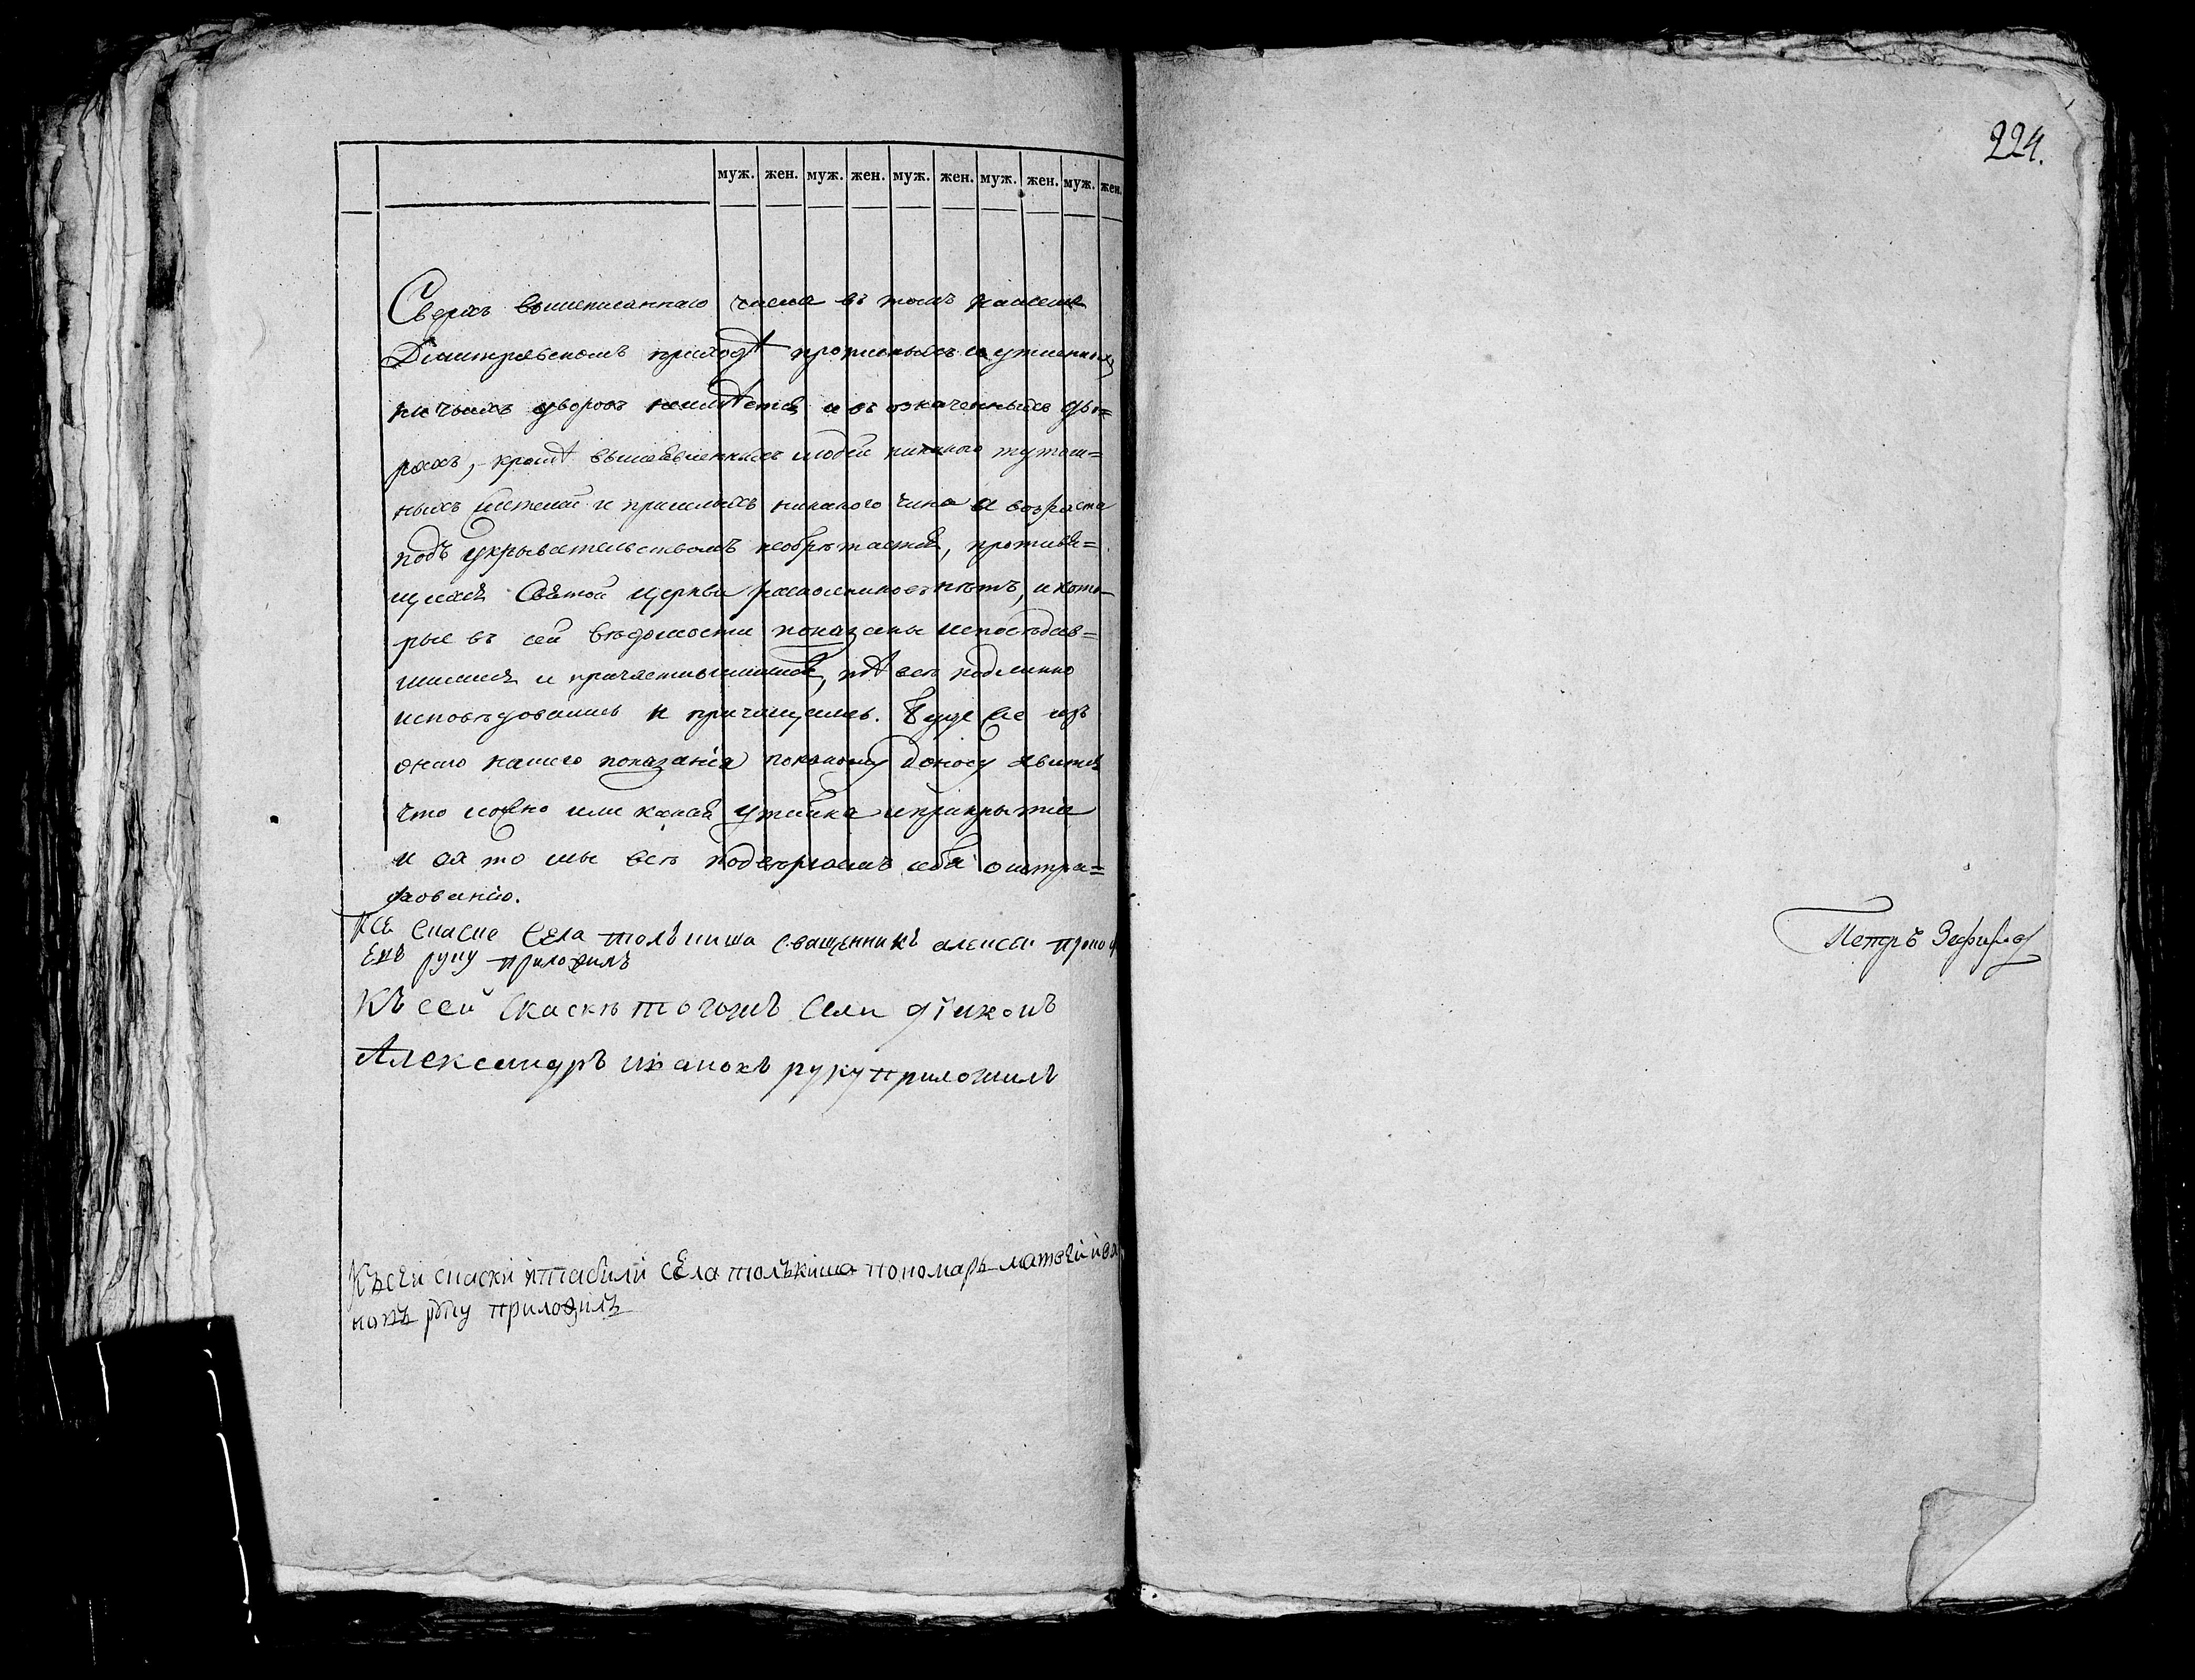 муж. жен. муж. жен. муж. жен. муж. жен. муж. жен.
Сверхъ вышеписаннаго числа въ томъ нашемъ
Димитріевскомъ приходѣ прописныхъ и утаенныхъ
ни чьихъ дворовъ неимѣется и въ означенныхъ дво=
рахъ, кромѣ вышеявленныхъ людей никакого тутош=
ныхъ жителей и пришлыхъ никакого чина и возраста
подъ укрывательствомъ необрѣтается, противя=
щихся Святой церкви раскольниковъ нѣтъ, и кото=
рые въ сей вѣдомости показаны исповѣдав=
шимися и причастившимися, тѣ всѣ подлинно
исповѣдовались и причащались. Буде же изъ
онаго нашего показанія покакому доносу явится
что ложно или какая утайка и прикрытіе
и за то мы всѣ подвергаемъ себя оштра=
фованію.
Ксе скаске села толъкиша священникъ алексеи
руку приложилъ
Къ сей скаске тогожъ села діяконъ
Александръ ивановъ руку приложилъ
Къ сеи скаски села толъкиша пономаръ матвеи ива
новъ руку приложилъ
224.
Петръ